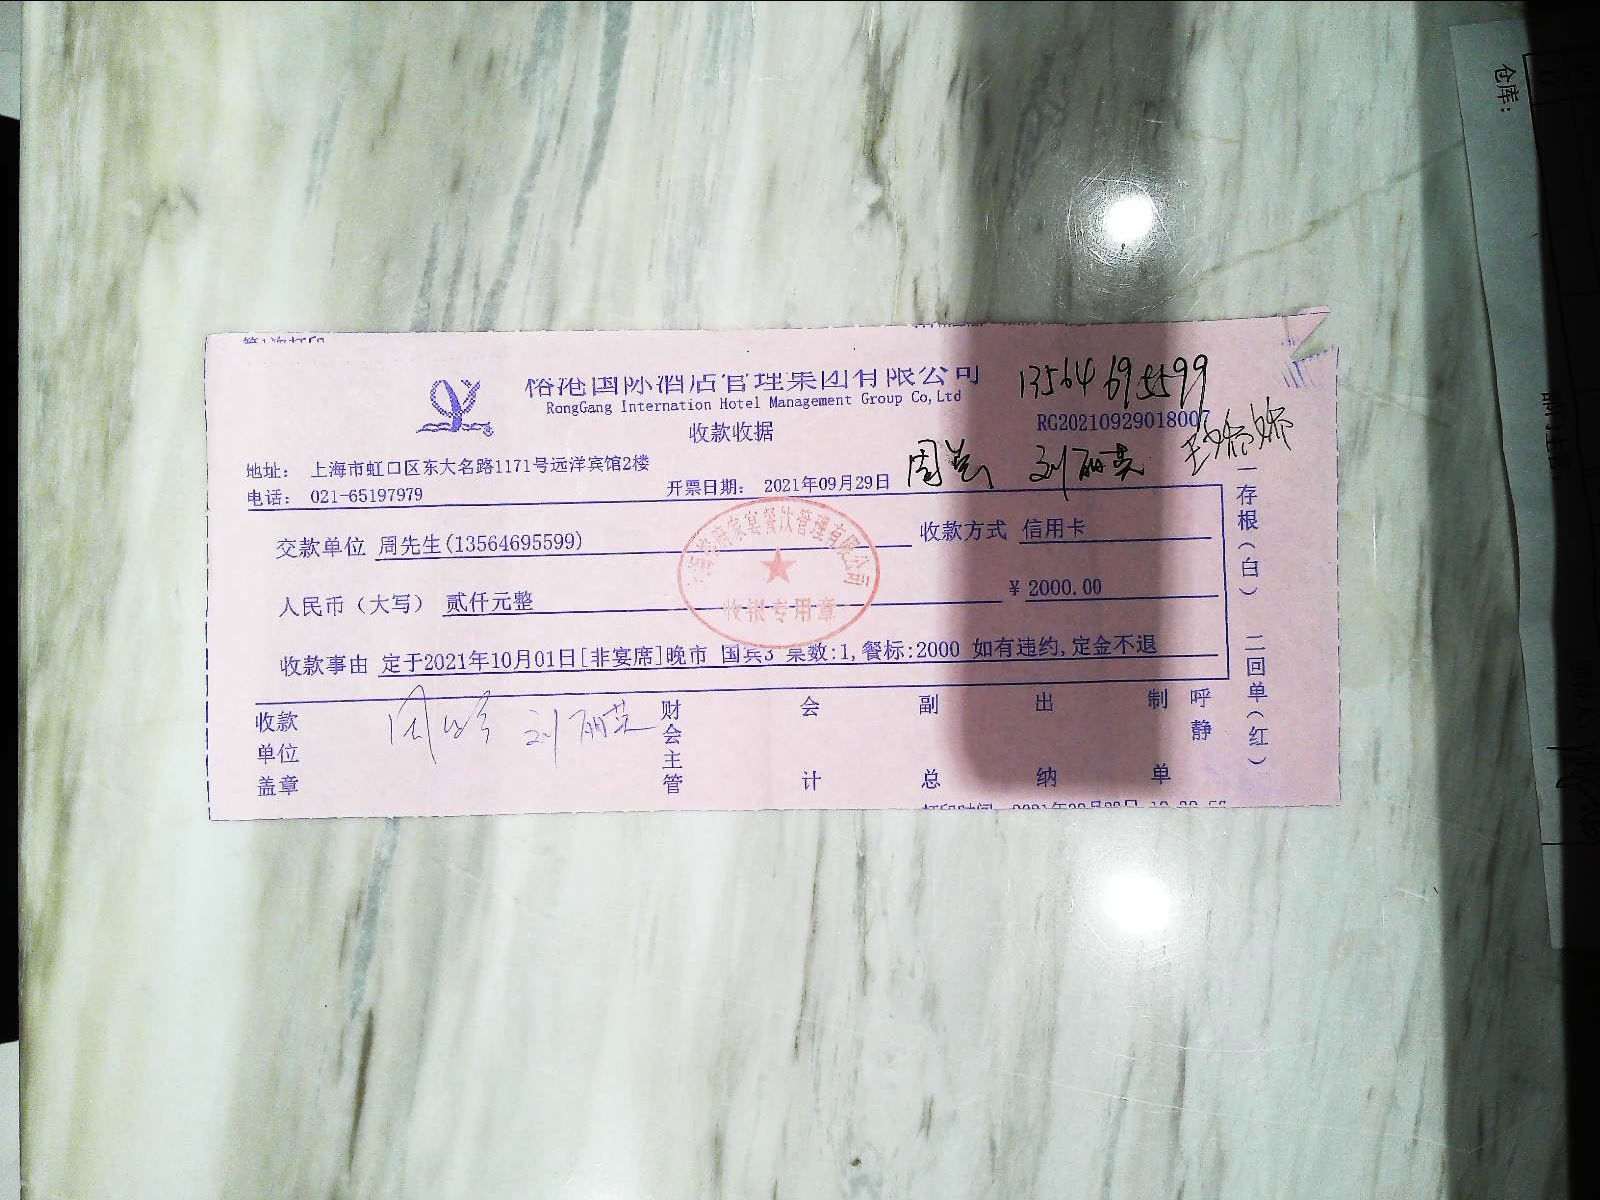 第1次打印
国际酒店管理集团有限公司
RongGang Internation Hotel Management Group Co,Ltd
收款收据
13564695599
RG20210929018007
地址： 上海市虹口区东大名路1171号远洋宾馆2楼
电话： 021-65197979
开票日期： 2021年09月29日
刘丽英
交款单位 周先生(13564695599)
收款方式 信用卡
人民币（大写） 贰仟元整
￥2000.00
收款事由 定于2021年10月01日[非宴席]晚市 国宾3 桌数:1,餐标:2000 如有违约,定金不退
家宴餐饮管理有限公司
收银专用章
一存根（白） 二回单（红）
收款单位盖章
刘丽英
财会主管
会计
副总
出纳
制单
呼静
仓库: